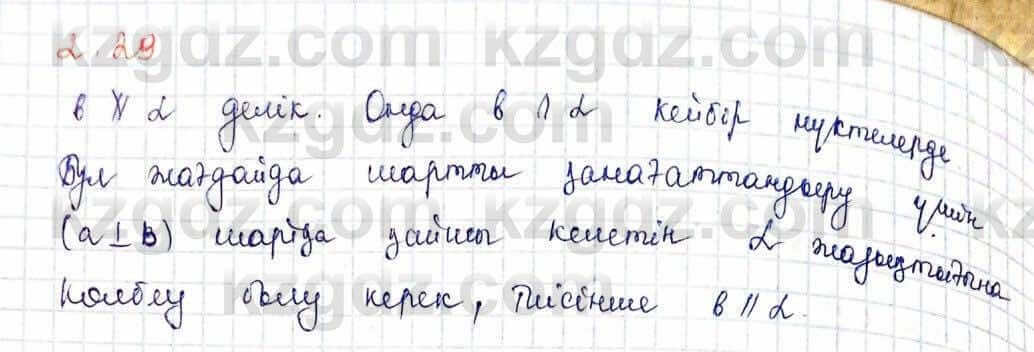 2.29
в ∦ α делік. Онда в ∩ α кейбір нүктелерде
Бұл жағдайда шартты қанағаттандыру үшін
(a ⊥ b) шартқа қайшы келетін α жазықтығына
колблу болу керек, Тиісінше в || α.
kzgdz.com kzgdz.com kzgdz.com